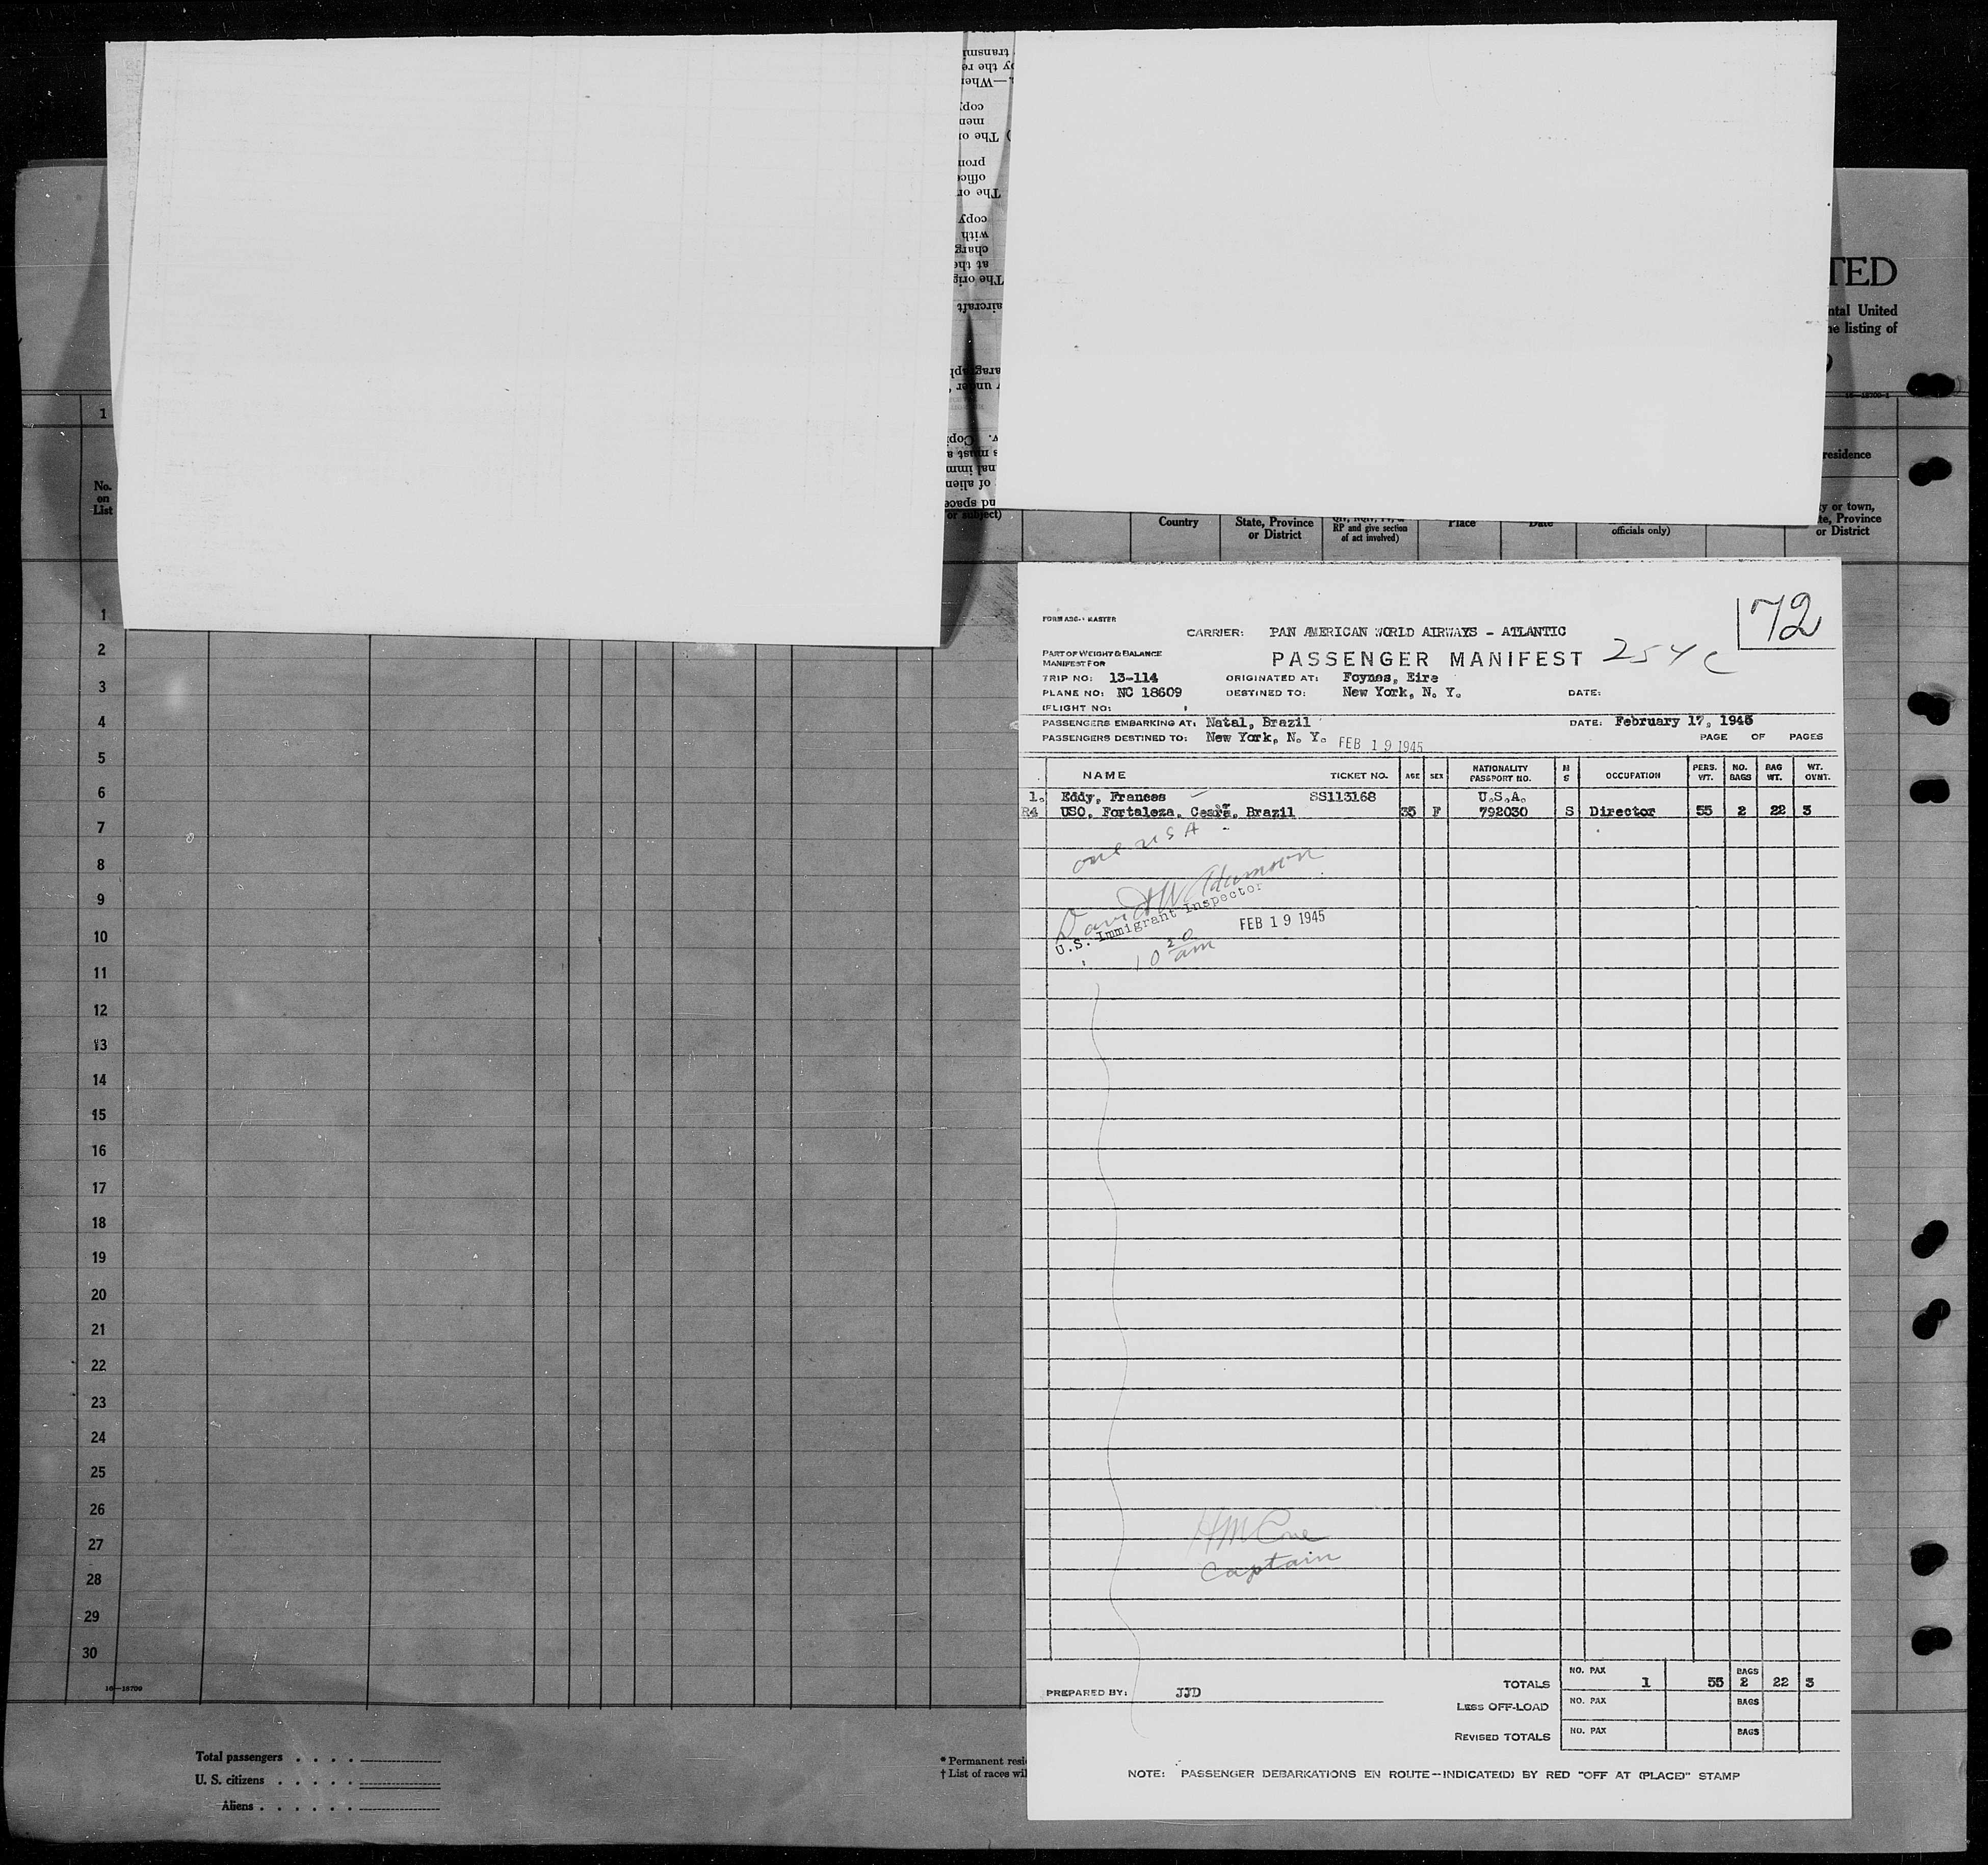 transmi
by the re
—When
copy
men
The or
prom
office
The or
copy
with
charg
at the
The orig
aircraft
TED
ntal United
he listing of
16—18700-1
1
No.
on
List
or subject)
Country
State, Province
or District
RP and give section
of act involved)
Place
Date
officials only)
residence
y or town,
te, Province
or District
1
2
3
4
5
6
7
8
9
10
11
12
13
14
15
16
17
18
19
20
21
22
23
24
25
26
27
28
29
30
16—18700
Total passengers
U. S. citizens
Aliens
* Permanent resi
† List of races wil
72
CARRIER: PAN AMERICAN WORLD AIRWAYS - ATLANTIC
PART OF WEIGHT & BALANCE
MANIFEST FOR
PASSENGER MANIFEST 254C
TRIP NO: 13-114 ORIGINATED AT: Foynes, Eire
PLANE NO: NC 18609 DESTINED TO: New York, N. Y. DATE:
FLIGHT NO:
PASSENGERS EMBARKING AT: Natal, Brazil DATE: February 17, 1945
PASSENGERS DESTINED TO: New York, N. Y. FEB 19 1945 PAGE OF PAGES
NAME TICKET NO. AGE SEX NATIONALITY PASSPORT NO. M S OCCUPATION PERS. WT. NO. BAGS BAG WT. WT. OVNT.
1. Eddy, Frances SS113168 U.S.A.
R4 USO, Fortaleza, Ceara, Brazil 35 F 792030 S Director 55 2 22 3
one USA
David W Adamson
U.S. Immigrant Inspector FEB 19 1945
10 20 am
H M Cone
Captain
PREPARED BY: JJD
TOTALS NO. PAX 1 55 BAGS 2 22 3
LESS OFF-LOAD NO. PAX BAGS
REVISED TOTALS NO. PAX BAGS
NOTE: PASSENGER DEBARKATIONS EN ROUTE--INDICATE(D) BY RED "OFF AT (PLACE)" STAMP